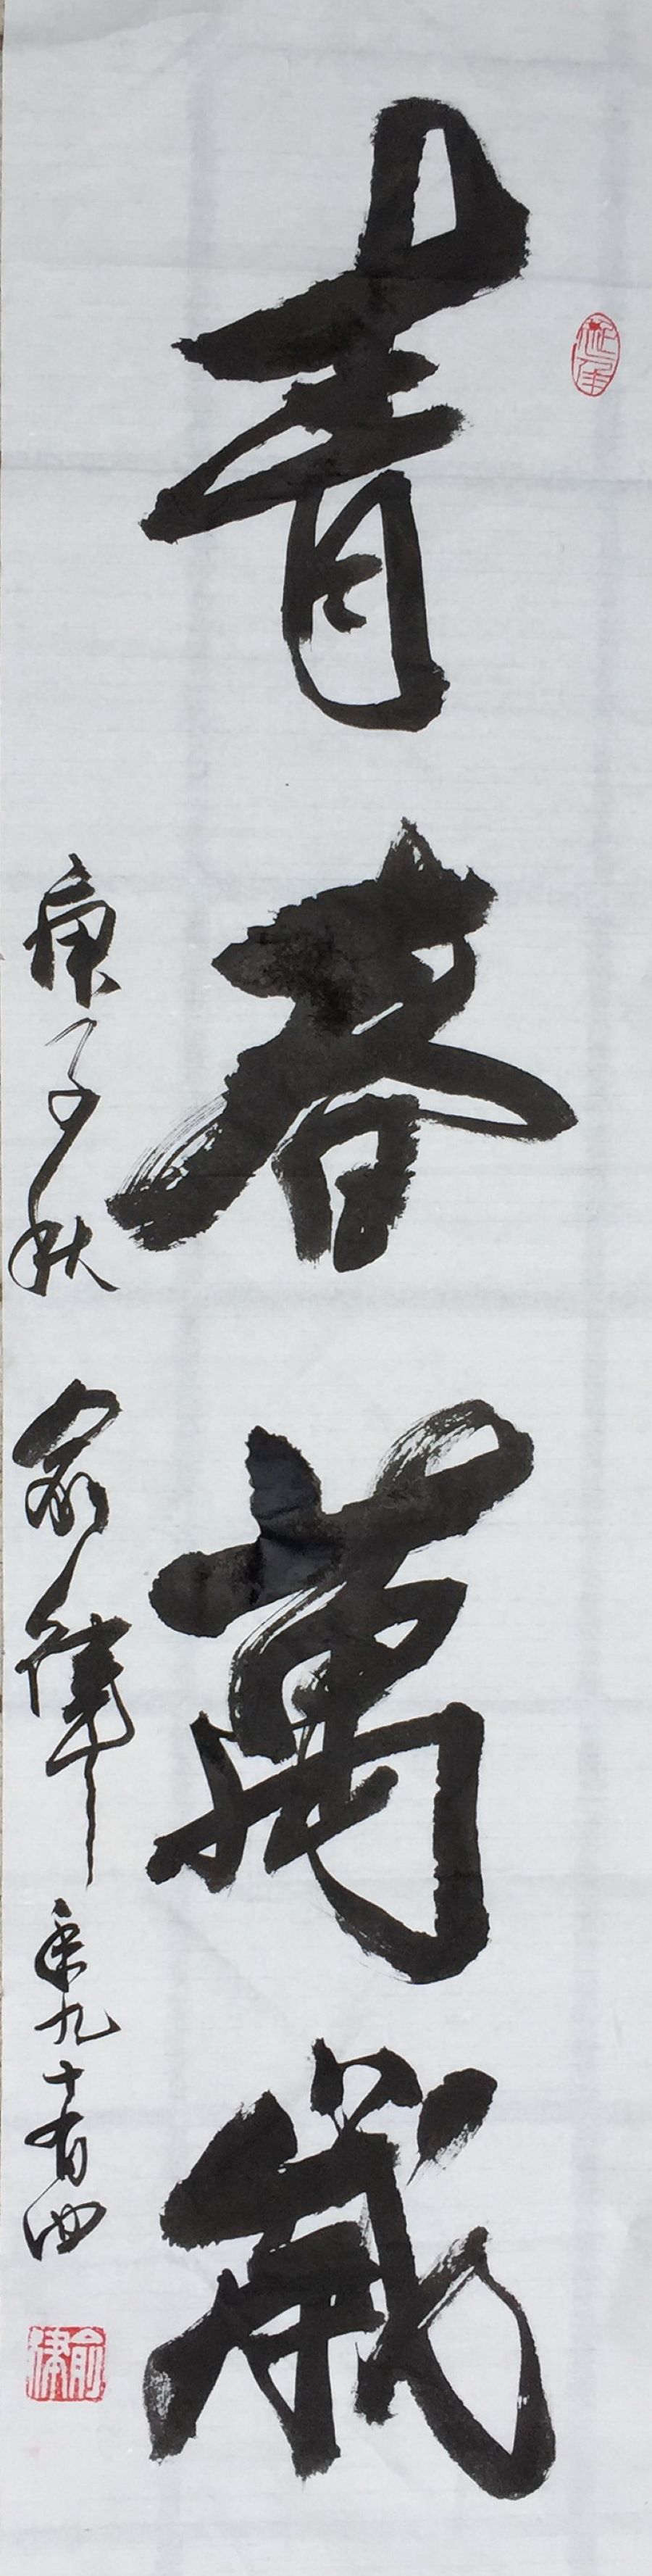 青春萬歲
庚子秋 俞律 年九十有四
俞律